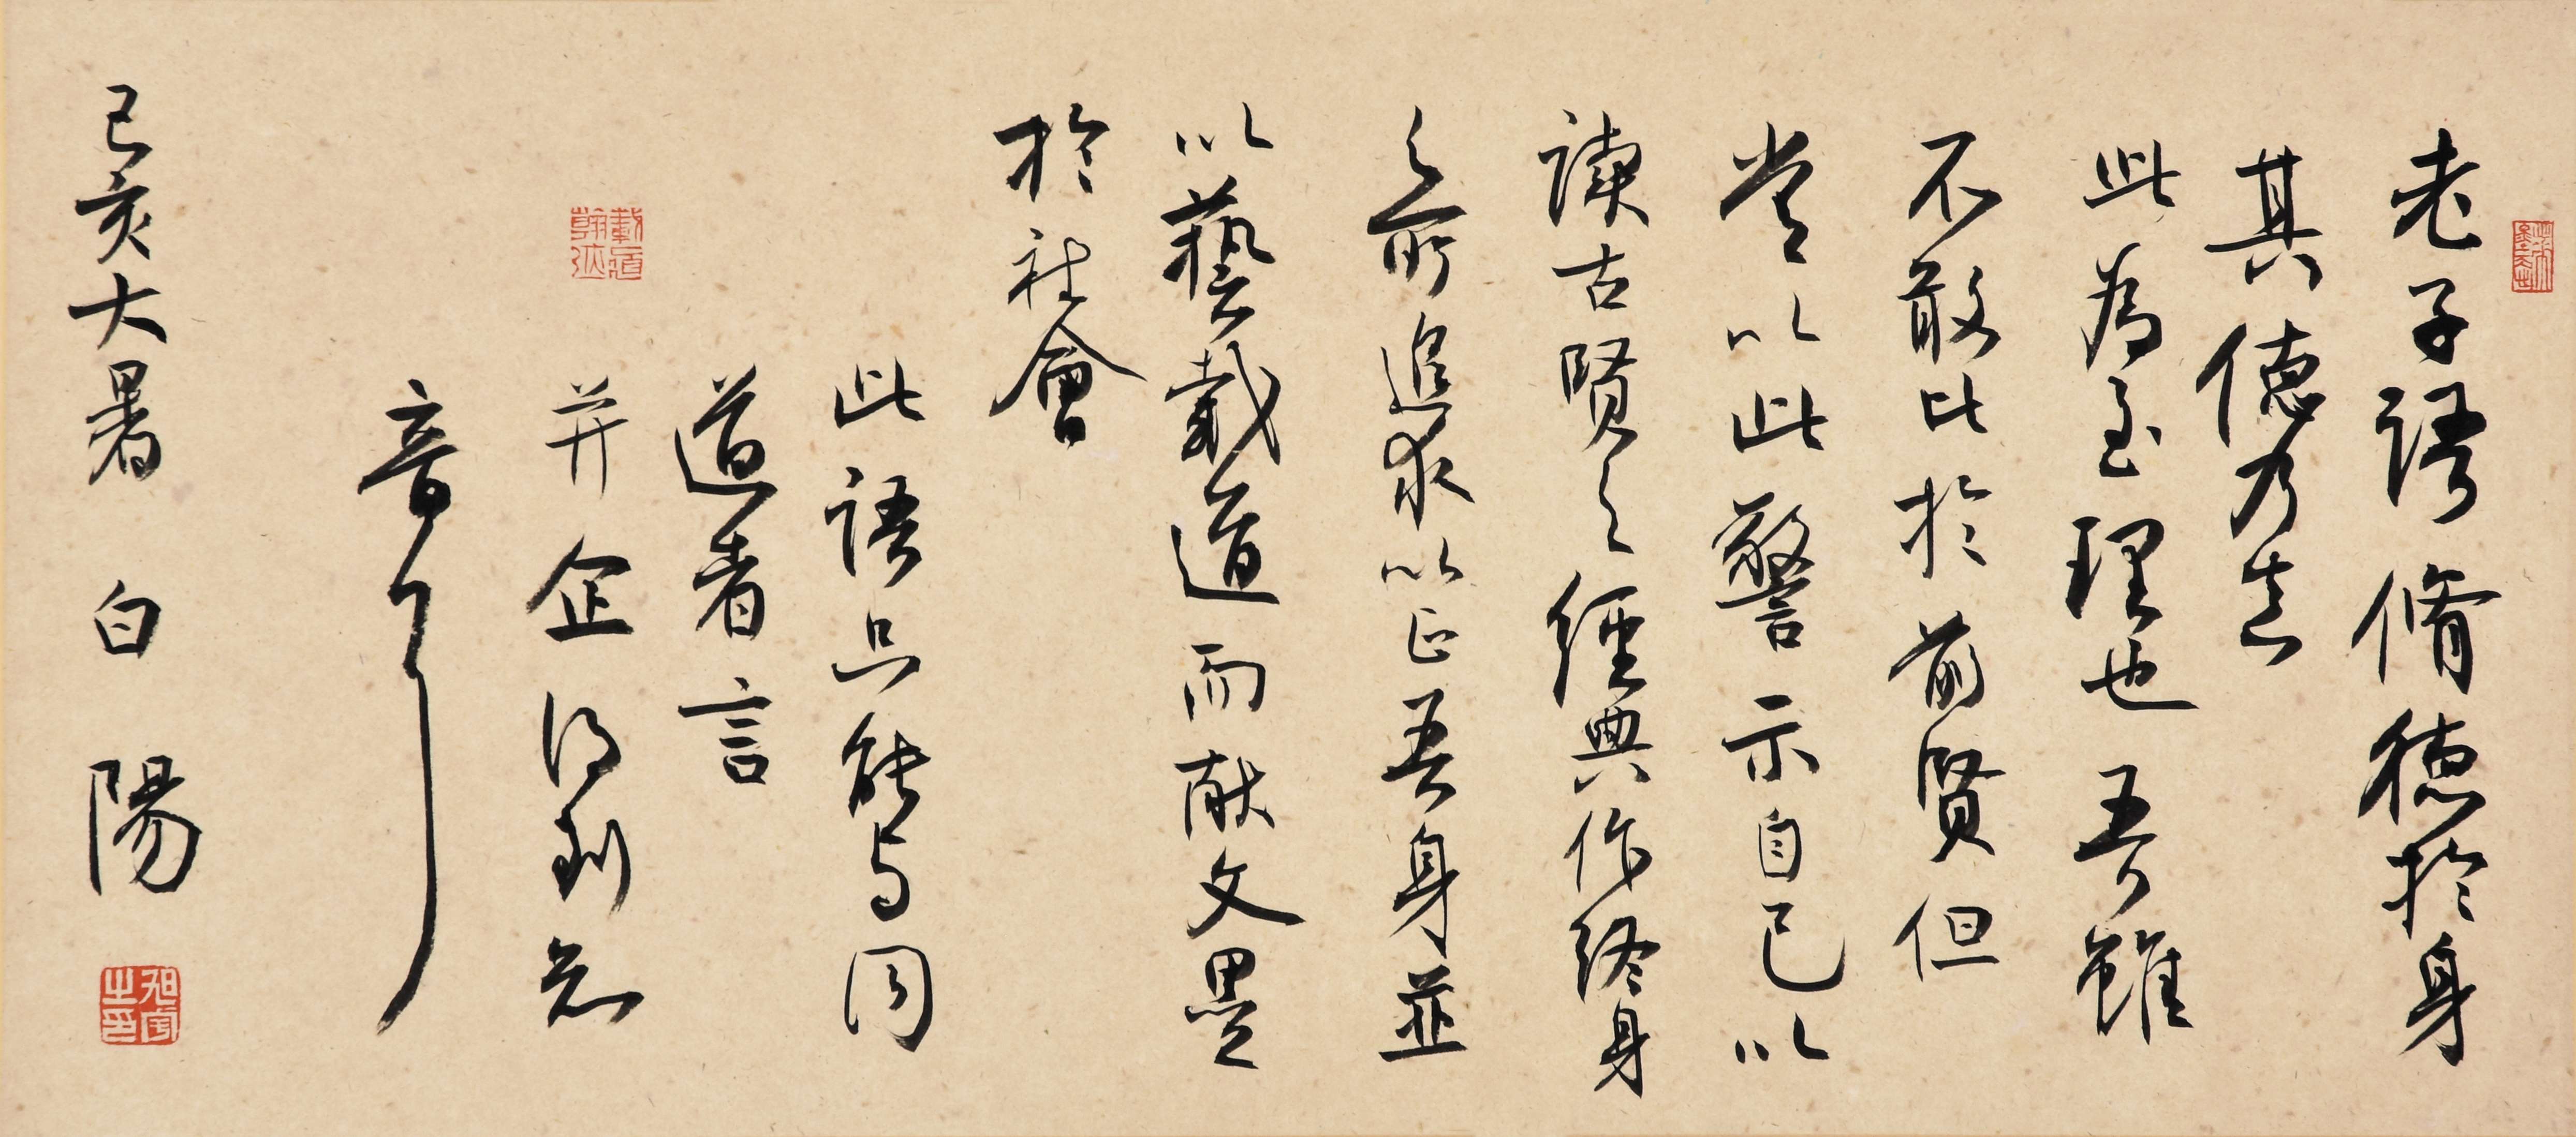 老子語脩德於身
其德乃真
此為至理也吾雖
不敢比於前賢但
常以此警示自己以
讀古賢之經典作終身
之所追求以正吾身並
以藝載道而献文墨
於社會
此語只能与同
道者言
并企得到知
音了
己亥大暑 白陽